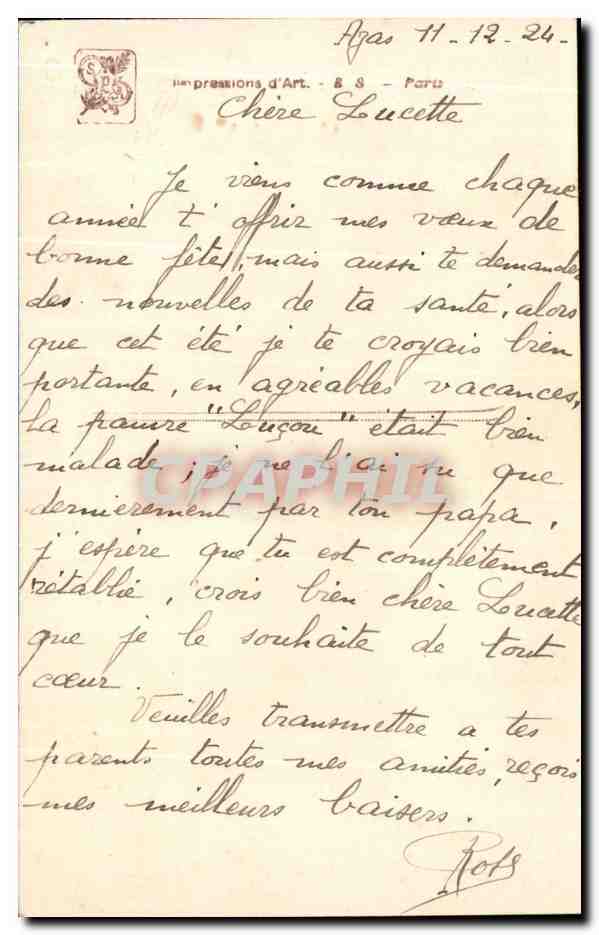 11-12-24-
Impressions d'Art. - B S - Paris
Chère Lucette
Je viens comme chaque
année t'offrir mes vœux de
bonne fête, mais aussi te demander
des nouvelles de ta santé, alors
que cet été je te croyais bien
portante, en agréables vacances,
la pauvre "Luçon" était bien
malade, je ne l'ai su que
dernièrement par ton papa,
j'espère que tu est complètement
rétablie, crois bien chère Lucette
que je le souhaite de tout
cœur.
Veuilles transmettre a tes
parents toutes mes amitiés, reçois
mes meilleurs baisers.
CPAPHIL